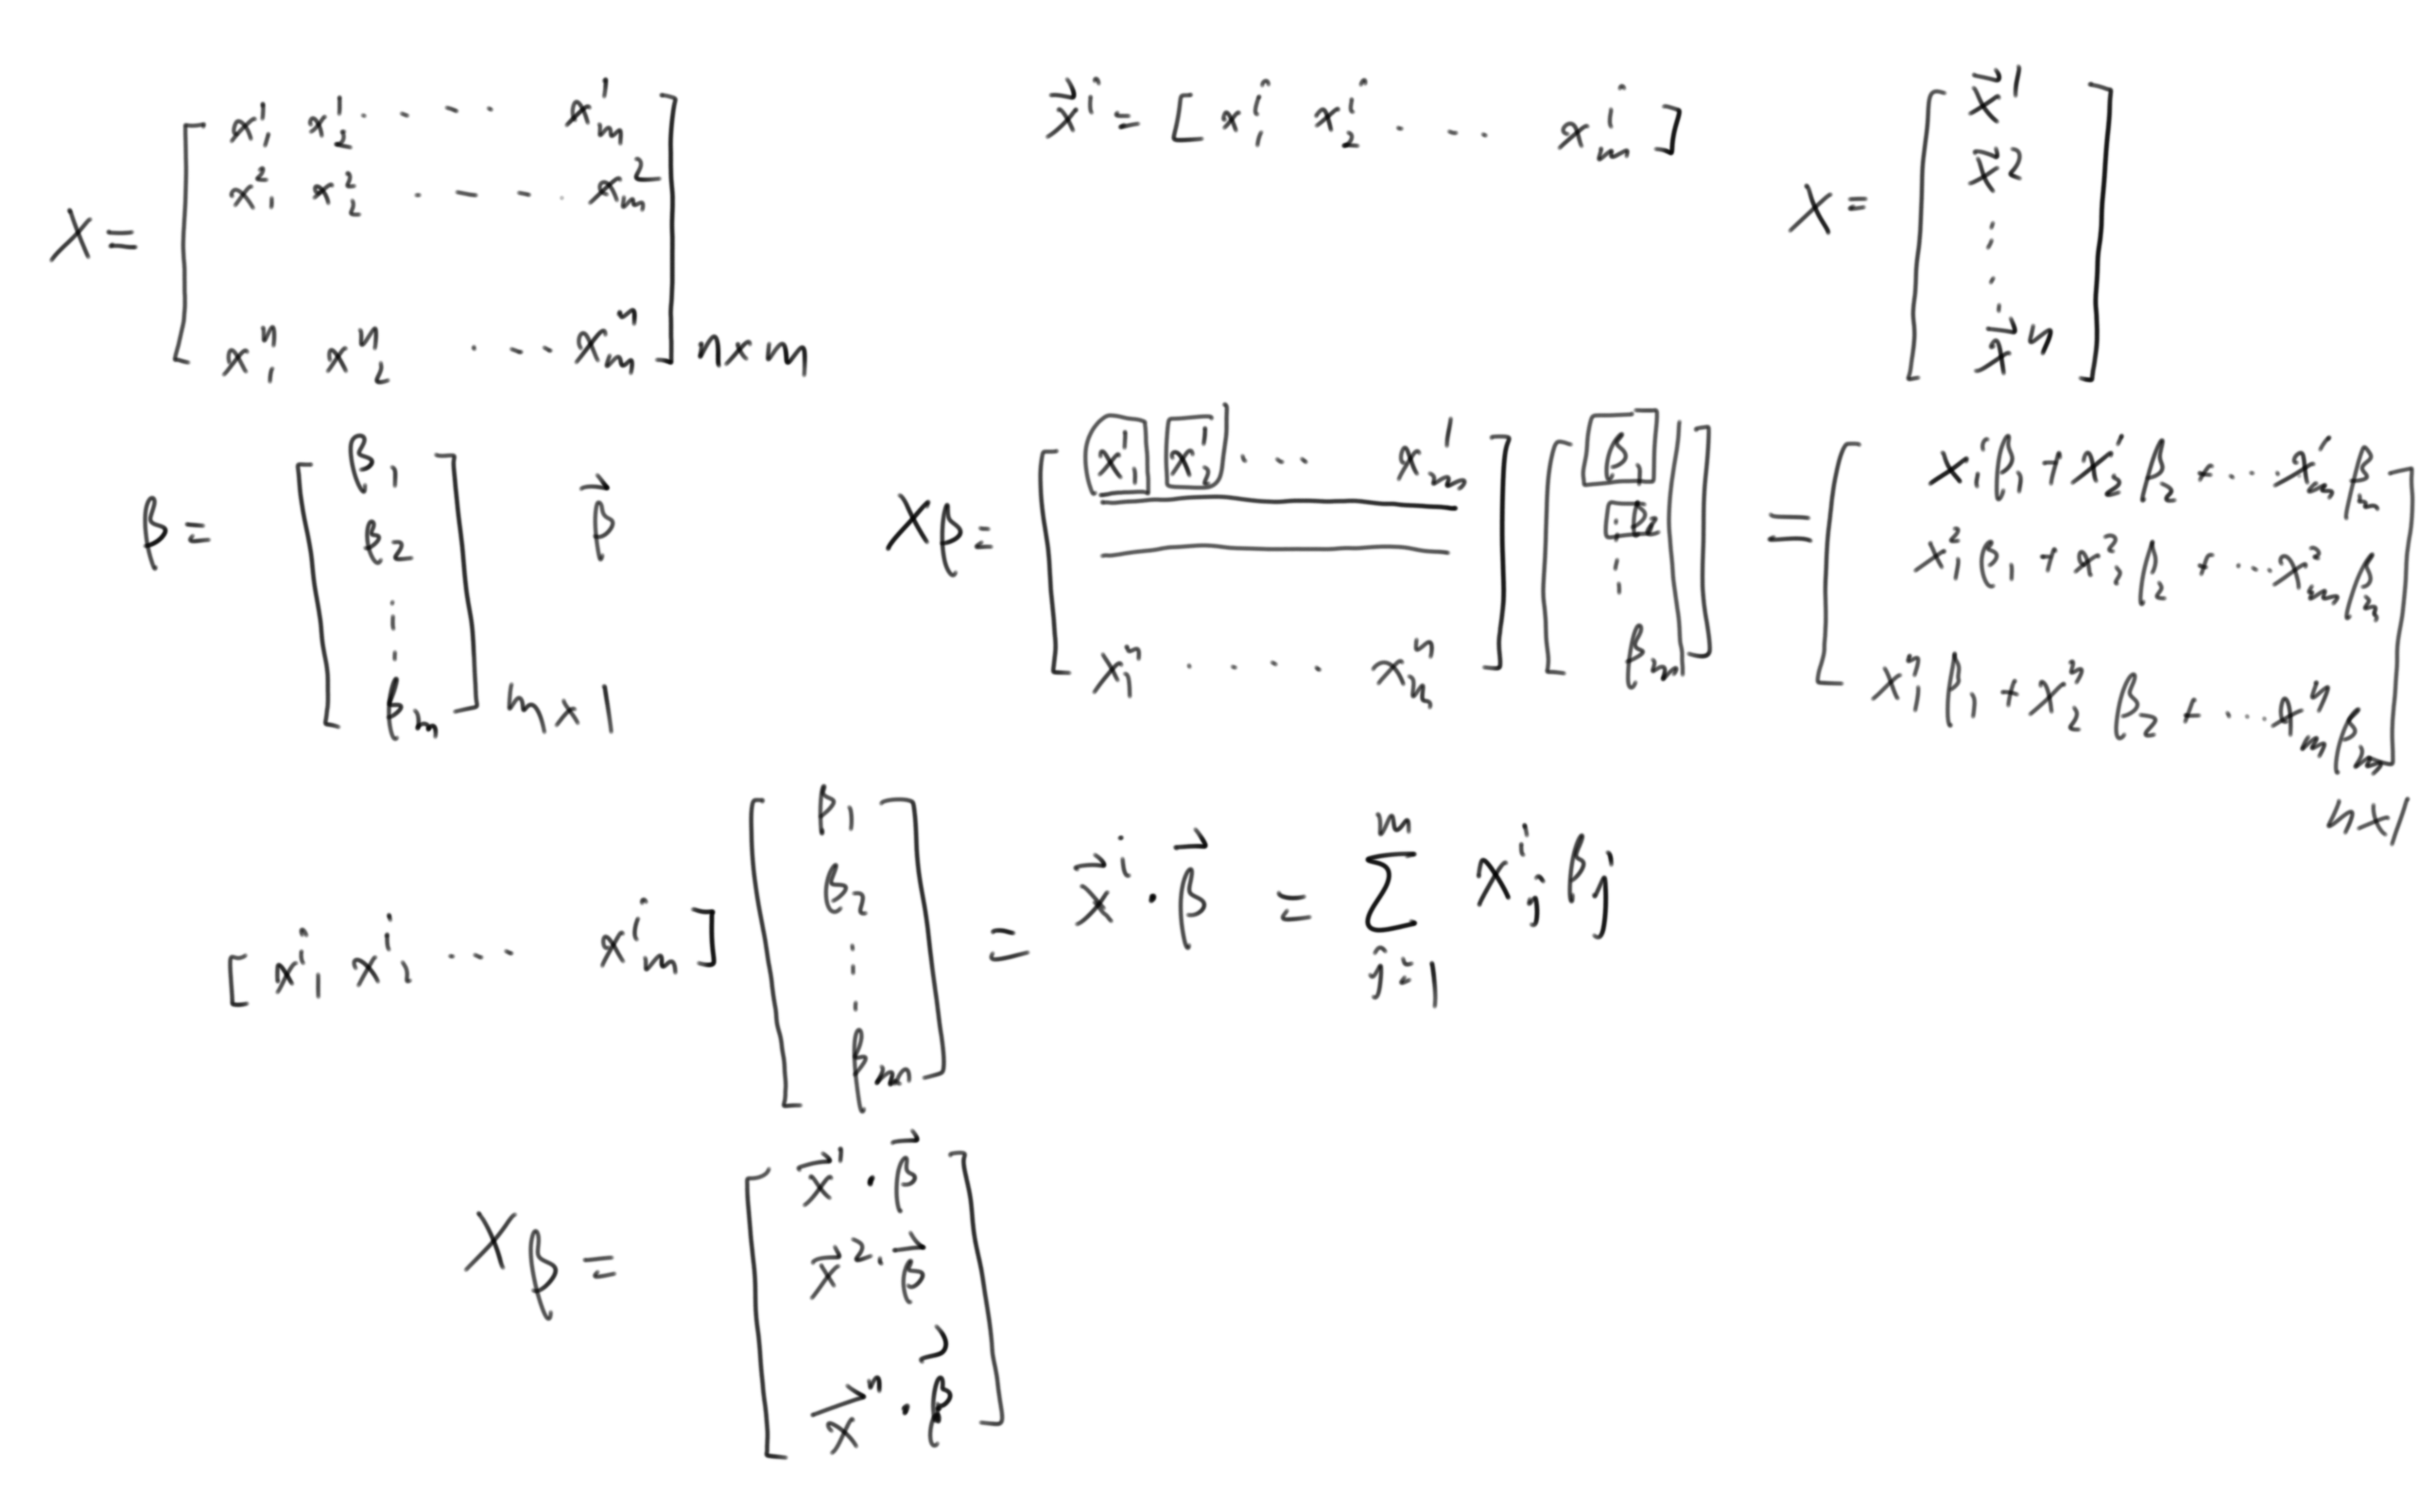 X = [ x₁¹ x₂¹ · · · · xₘ¹
x₁² x₂² · - - · xₘ²
x₁ⁿ x₂ⁿ · · · xₘⁿ ] n×m
x⃗ⁱ = [ x₁ⁱ x₂ⁱ · · · xₘⁱ ]
X = [ x⃗¹
x⃗²
⋮
x⃗ⁿ ]
β = [ β₁
β₂
⋮
βₘ ] m×1
β⃗
Xβ = [ x₁¹ x₂¹ · · · xₘ¹
x₁ⁿ · · · · xₘⁿ ] [ β₁
β₂
⋮
βₘ ] ]
= [ x₁¹β₁ + x₂¹β₂ + · · · xₘ¹βₘ
x₁²β₁ + x₂²β₂ + · · · xₘ²βₘ
x₁ⁿβ₁ + x₂ⁿβ₂ + · · · xₘⁿβₘ ]
n×1
[ x₁ⁱ x₂ⁱ · · · xₘⁱ ] [ β₁
β₂
⋮
βₘ ] = x⃗ⁱ · β⃗ = ∑ⱼ₌₁ᵐ xⱼⁱ βⱼ
Xβ = [ x⃗¹ · β⃗
x⃗² · β⃗
x⃗ⁿ · β⃗ ]